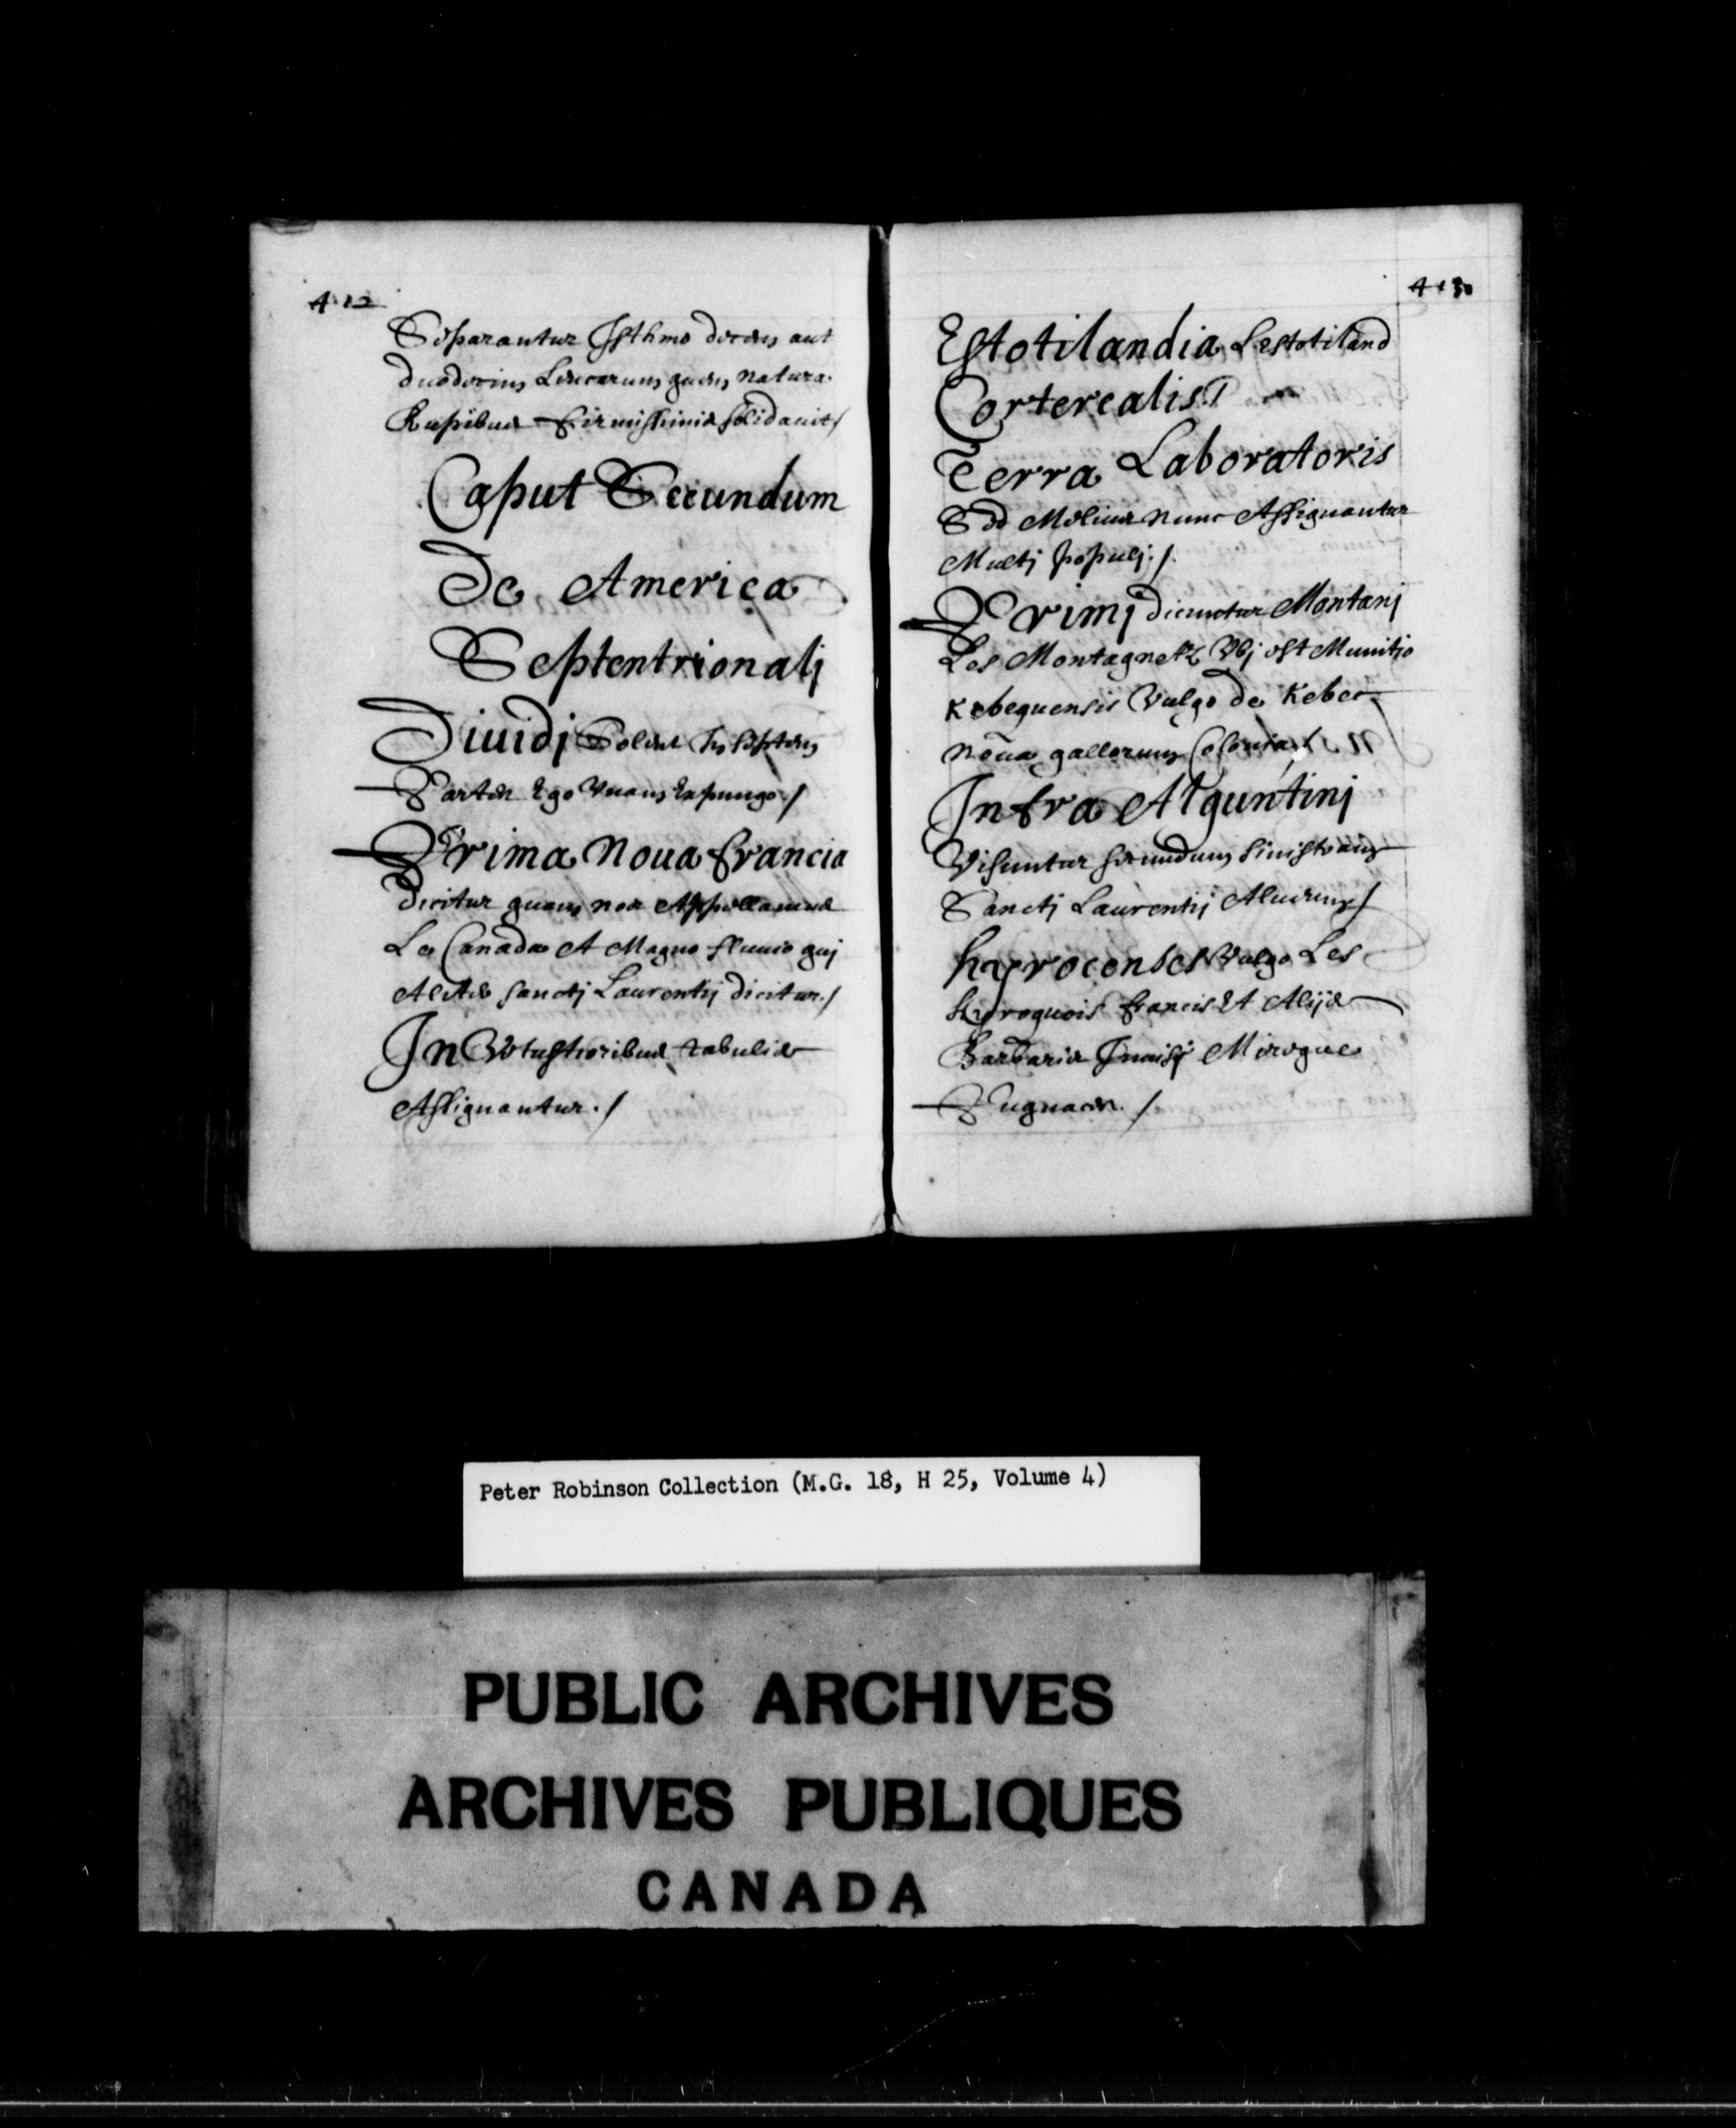 412
Separantur Isthmo decem aut
duodecim Leucarum quem natura
Rupibus firmissimis solidauit/
Caput Secundum
De America
Septentrionalj
Diuidj Solet In septem
Partes Ego Vnam Expungo./
Prima Noua francia
dicitur quam nos Appellamus
Le Canada A Magno fluuio quj
Alias sanctj Laurentij dicitur./
In Vetustioribus tabulis
Assignantur./
413
Estotilandia Lestotiland
Corterealis
Terra Laboratoris
Sed Melius nunc Assignantur
Multj populj./.
Primj dicuntur Montanj
Les Montagnetz Vbj est Munitio
Kebequensis Vulgo de Kebec
Noua gallorum Colonia
Infra Alguntinj
Visuntur secundum sinistram
Sanctj Laurentij Alueum/
hyrocenses Vulgo Les
hyroquois francis Et Alijs
Barbaris Inuisj Mireque
Pugnaces./
Peter Robinson Collection (M.G. 18, H 25, Volume 4)
PUBLIC ARCHIVES
ARCHIVES PUBLIQUES
CANADA